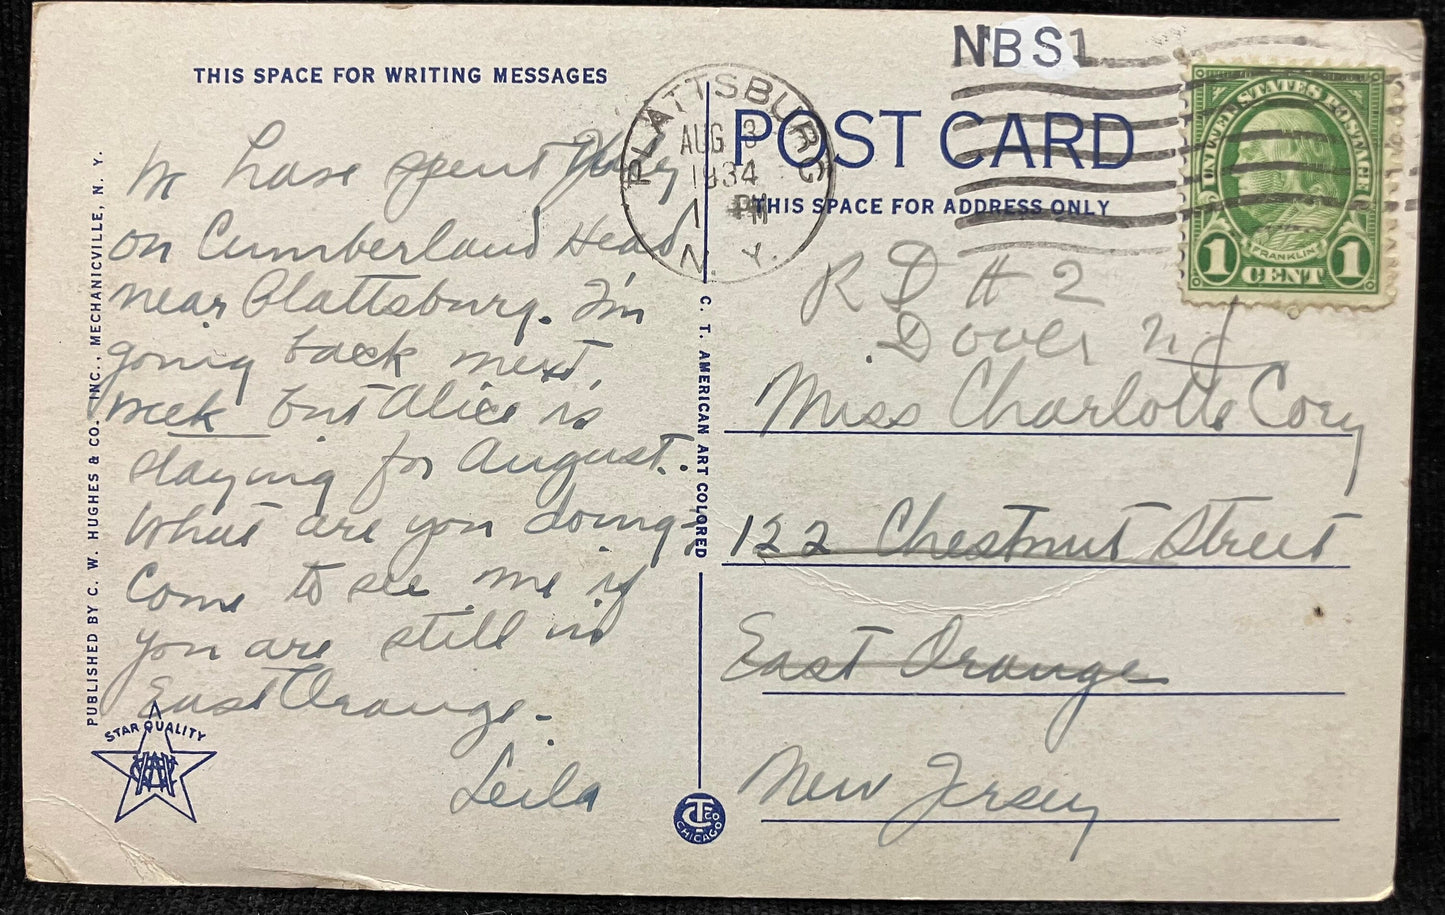 THIS SPACE FOR WRITING MESSAGES
We have spent July
on Cumberland Head
near Plattsburg. I'm
going back next
week but Alice is
staying for August.
What are you doing,
Come to see me if
you are still in
East Orange.
Leila
PUBLISHED BY C. W. HUGHES & CO. INC., MECHANICVILLE, N. Y.
A
STAR QUALITY
C. T. AMERICAN ART COLORED
CT CO
CHICAGO
PLATTSBURG
AUG 3
1934
1 PM
N. Y.
NBS1
POST CARD
THIS SPACE FOR ADDRESS ONLY
UNITED STATES POSTAGE
FRANKLIN
1 CENT 1
R D # 2
Dover N J
Miss Charlotte Cory
122 Chestnut Street
East Orange
New Jersey